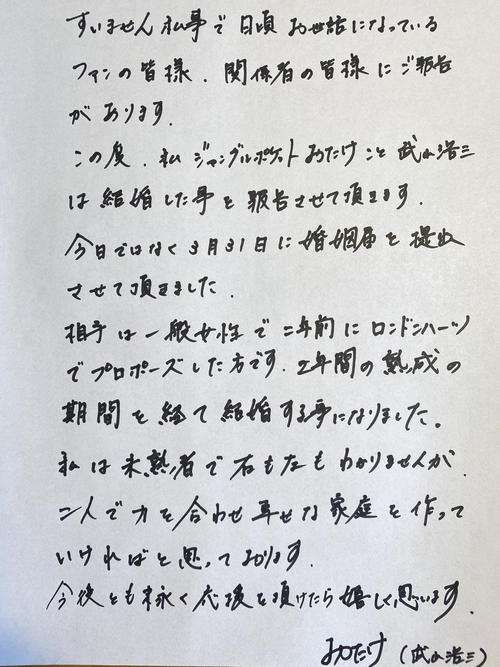 すいません私事で日頃お世話になっている
ファンの皆様、関係者の皆様にご報告
があります。
この度、私ジャングルポケットおたけこと武山浩三
は結婚した事を報告させて頂きます。
今日ではなく3月31日に婚姻届を提出
させて頂きました。
相手は一般女性で二年前にロンドンハーツ
でプロポーズした方です。2年間の熟成の
期間を経て結婚する事になりました。
私は未熟者で右も左もわかりませんが、
二人で力を合わせ幸せな家庭を作って
いければと思っております。
今後とも末永く応援を頂けたら嬉しく思います。
おたけ(武山浩三)